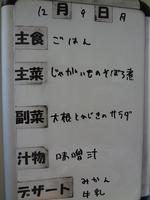 12月9日月
主食 ごはん
主菜 じゃがいものそぼろ煮
副菜 大根とひじきのサラダ
汁物 味噌汁
デザート みかん
牛乳